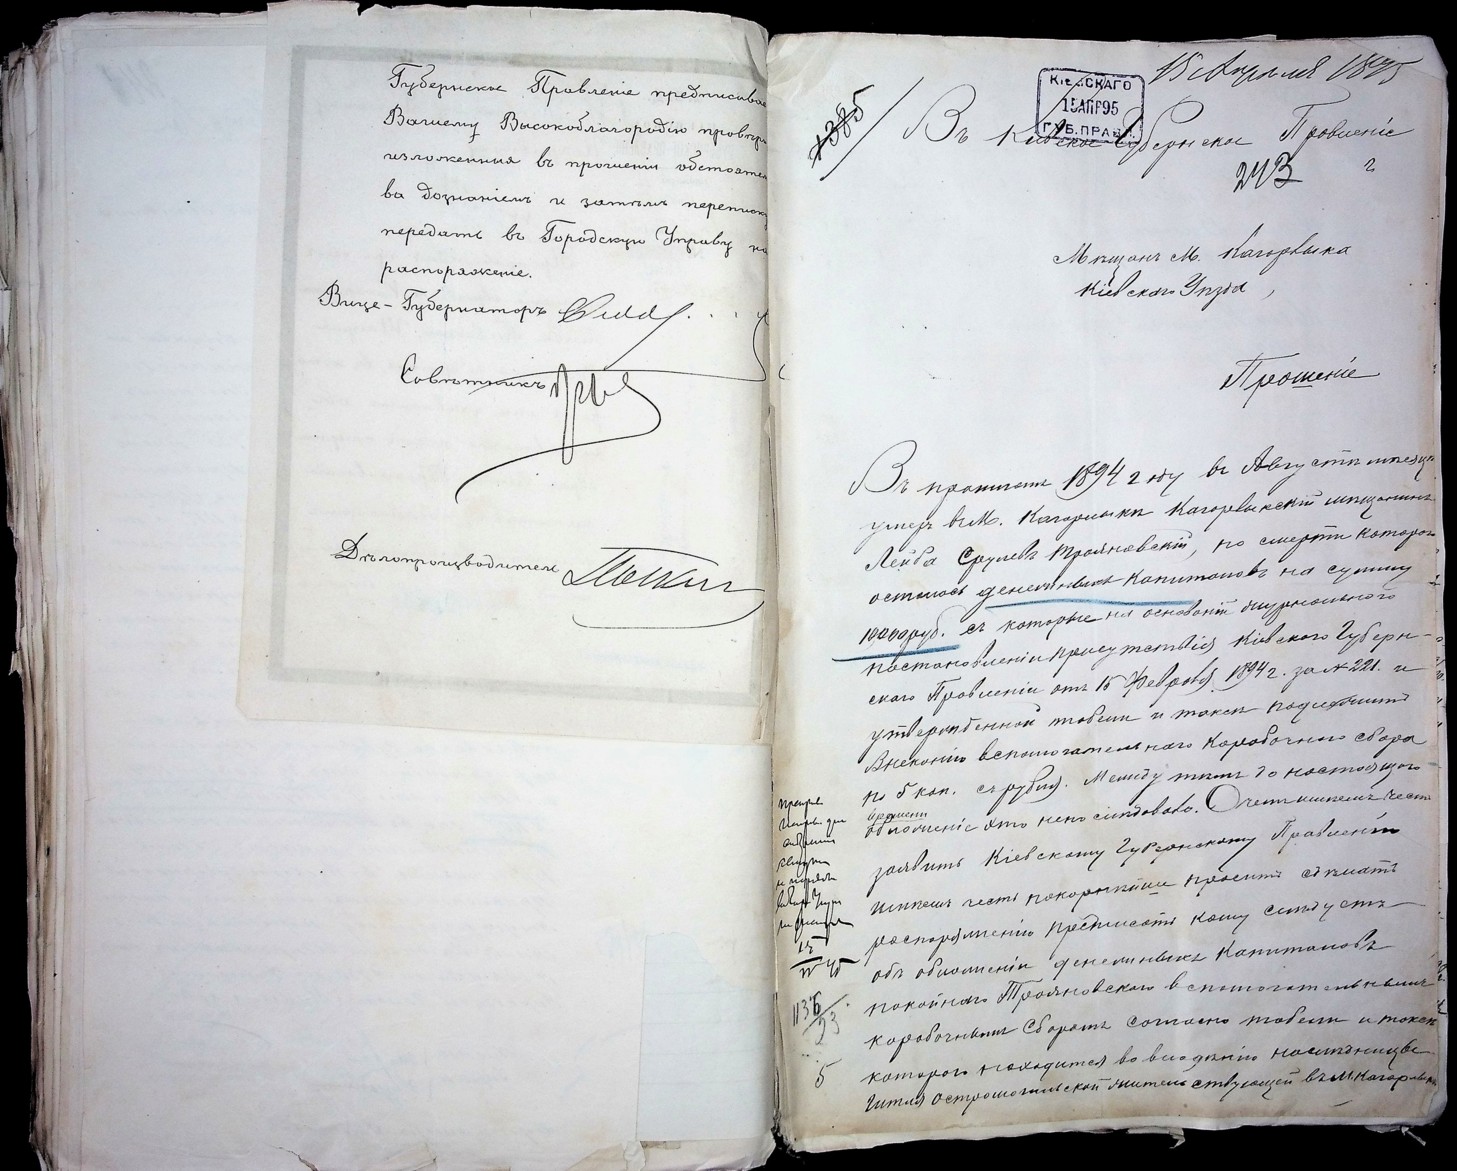 Губернское Правленіе предписывае
Вашему Высокоблагородію провѣри
изложенныя въ прошеніи обстоятел
ва дознаніемъ и затѣмъ переписку
передать въ Городскую Управу на
распоряженіе.
Вице-Губернаторъ
Совѣтникъ
Дѣлопроизводитель
15 Апрѣля 1895
КІЕВСКАГО
15 АПР 95
ГУБ. ПРАВЛ.
4385
Въ Кіевское Губернское Правленіе
243
Мѣщанъ М. Кагарлыка
Кіевскаго Уѣзда,
Прошеніе
Въ прошломъ 1894 году въ Августѣ мѣсяцѣ
умеръ въ М. Кагарлыкѣ Кагарлыкскій мѣщанинъ
Лейба Срулевъ Трояновскій, по смерти котораго
осталось денежныхъ Капиталовъ на сумму
10,000 руб. съ которые на основаніи журнальнаго
постановленія присутствія Кіевскаго Губерн-
скаго Правленія отъ 15 Февраля 1894 г. за № 221. и
утвержденной табели и таксы подлежитъ
Внесенію вспомогательнаго Коробочнаго сбора
по 5 коп. съ рубля. Между тѣмъ до настоящаго
времени
обложеніе это непослѣдовало. О чемъ имѣемъ честь
заявить Кіевскому Губернскому Правленію
имѣемъ честь покорнѣйше просить сдѣлать
распоряженіе предписать кому слѣдуетъ
объ обложеніи денежныхъ Капиталовъ
покойнаго Трояновскаго вспомогательнымъ
коробочнымъ сборомъ согласно табели и таксы
котораго находится во владѣніи наслѣдницѣ
Гитля Острошогольской жительствующей въ М. Кагарлыкѣ
15
IV 95
1136
23
5